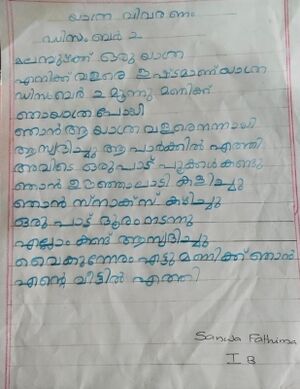 യാത്ര വിവരണം
ഡിസംബർ 2
മലമ്പുഴക്ക് ഒരു യാത്ര
എനിക്ക് വളരെ ഇഷ്ടമാണ് യാത്ര
ഡിസംബർ 2 മൂന്നു മണിക്ക്
ഞാൻ ആ യാത്ര വളരെ നന്നായി
ആസ്വദിച്ചു ആ പാർക്കിൽ എത്തി
അവിടെ ഒരുപാട് പൂക്കൾ കണ്ടു
ഞാൻ ഊഞ്ഞാലാടി കളിച്ചു
ഞാൻ സ്നാക്സ് കഴിച്ചു
ഒരു പാട് ദൂരം നടന്നു
എല്ലാം കണ്ട് ആസ്വദിച്ചു
വൈകുന്നേരം എട്ടു മണിക്ക് ഞാൻ
എന്റെ വീട്ടിൽ എത്തി
Sanwa Fathima
I B